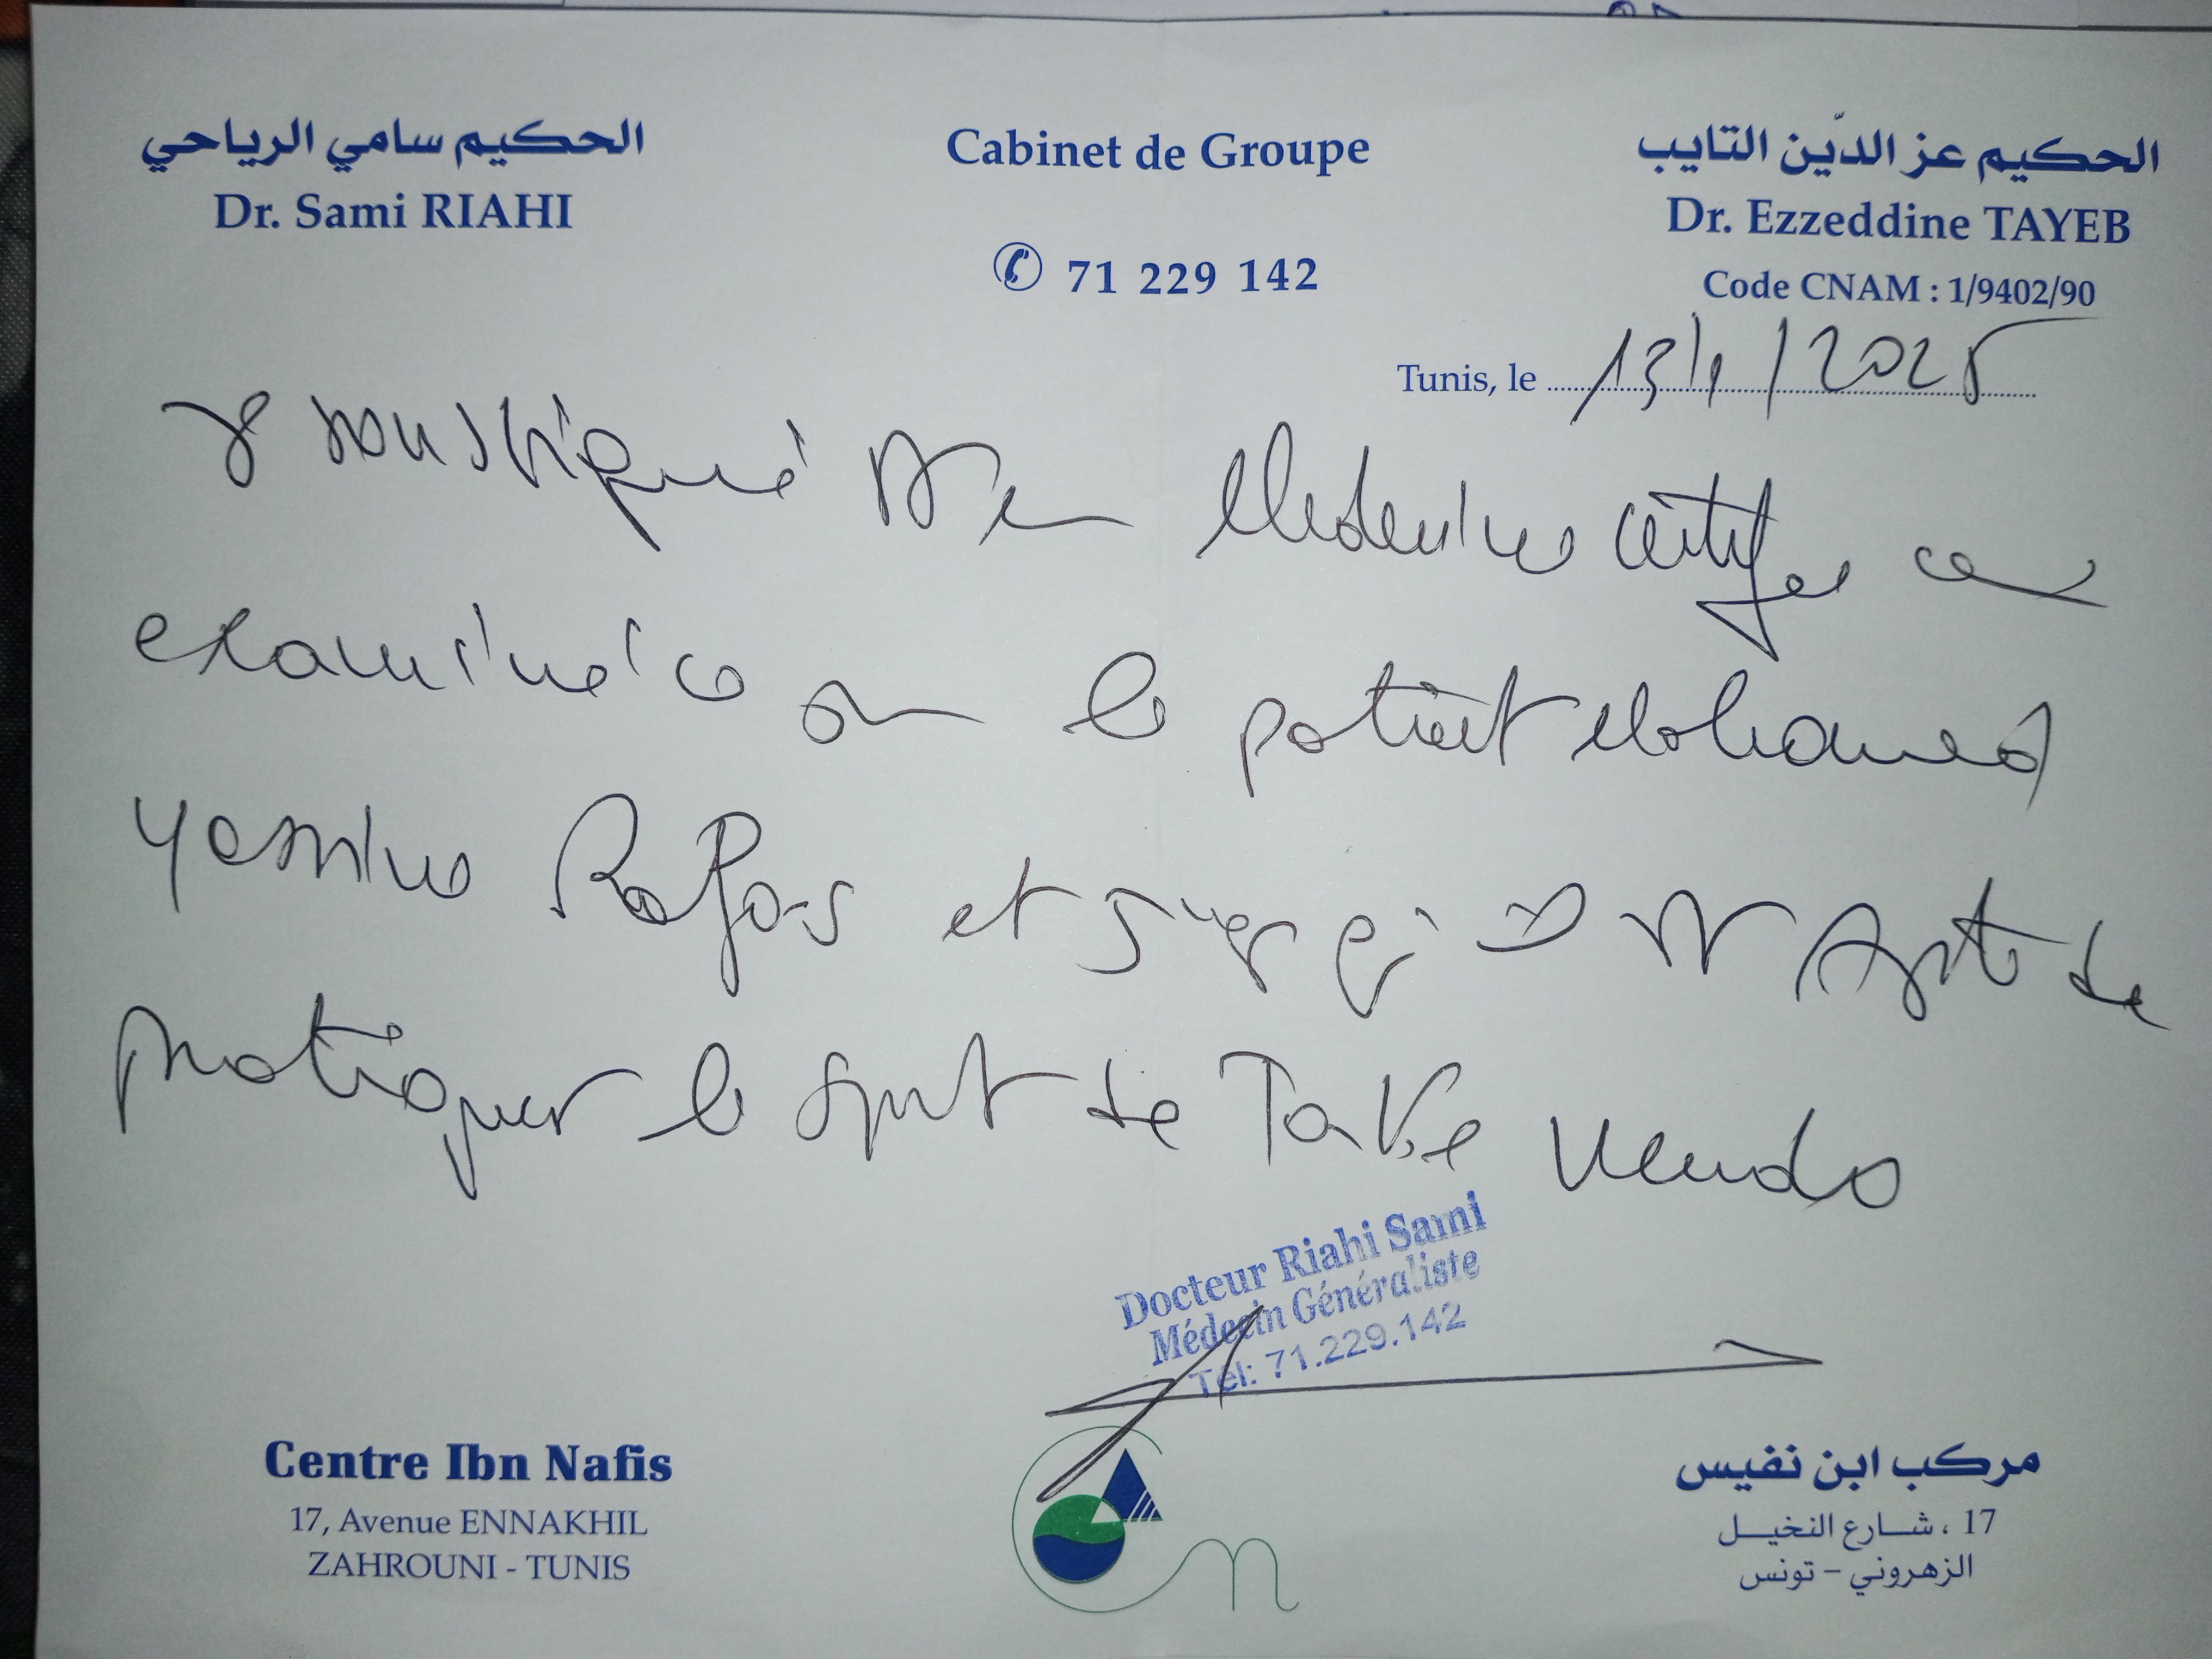 الحكيم سامي الرياحي
Dr. Sami RIAHI
Cabinet de Groupe
71 229 142
الحكيم عز الدّين التايب
Dr. Ezzeddine TAYEB
Code CNAM : 1/9402/90
Tunis, le 13/1/2025
Je soussigné Dr en Medecine certifie
examiné ce le patient Mohamed
Yassine et Apte de
pratiquer le sport de Take Wendo
Docteur Riahi Sami
Médecin Généraliste
Tél: 71.229.142
Centre Ibn Nafis
17, Avenue ENNAKHIL
ZAHROUNI - TUNIS
مركب ابن نفيس
17 ، شارع النخيل
الزهروني - تونس